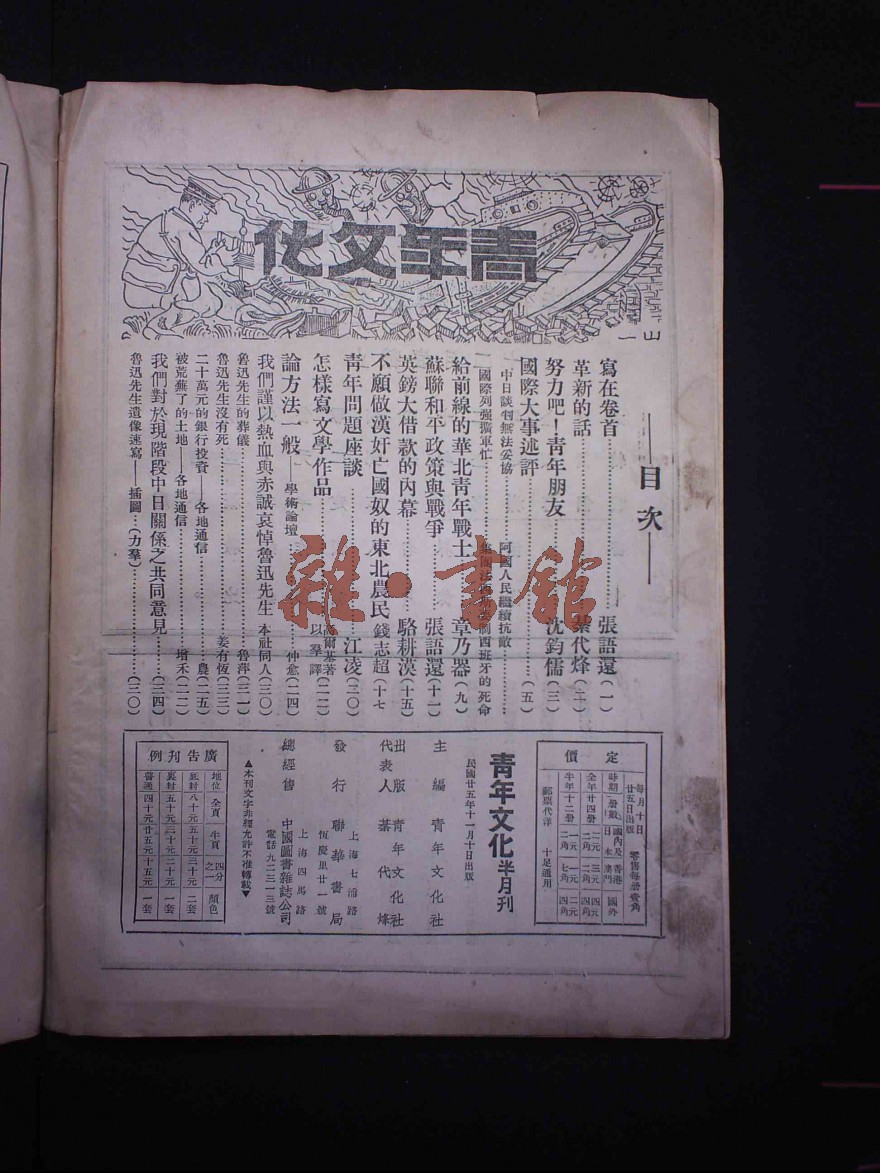 青年文化
山一
目次
寫在卷首 張語還(一)
革新的話 綦代烽(二)
努力吧!青年朋友 沈鈞儒(三)
國際大事述評 (五)
中日談判無法妥協 阿國人民繼續抗敵
國際列强擴軍忙 西班牙的死命
給前線的華北青年戰士 章乃器(九)
蘇聯和平政策與戰爭 張語還(十一)
英鎊大借款的內幕 駱耕漠(十五)
不願做漢奸亡國奴的東北農民 錢志超(十七
青年問題座談 江凌(二〇)
怎樣寫文學作品 高爾基著 以羣譯(二二)
論方法一般——學術論壇 仲愈(二四)
我們謹以熱血與赤誠哀悼魯迅先生 本社同人(三〇)
魯迅先生的葬儀 魯萍(三一)
魯迅先生沒有死 姜有恆(三三)
二十萬元的銀行投資——各地通信 農(二五)
被荒蕪了的土地——各地通信 增禾(二二)
我們對於現階段中日關係之共同意見 (三四)
魯迅先生遺像速寫——插圖(力羣) (三〇)
定價
每月十日廿五日出版 零售每册壹角
時期 册數 國內及日本 香港澳門 國外
全年 廿四册 二元二角 三元 四元四角
半年 十二册 一元二角 一元七角 二元四角
郵票代洋 十足通用
青年文化半月刊
民國廿五年十一月十日出版
主編 青年文化社
出版 青年文化社
代表人 綦代烽
發行 聯華書局
上海七浦路
恆慶里廿一號
總經售 中國圖書雜誌公司
上海四馬路
電話九二三一三號
▲本刊文字非經允許不准轉載▼
廣告刊例
地位 全頁 半頁 四分之一 顏色
底封 八十元 五十元 三十元 二套
裏封 五十元 三十元 二十元 一套
普通 四十元 廿五元 十五元 一套
雜·書館